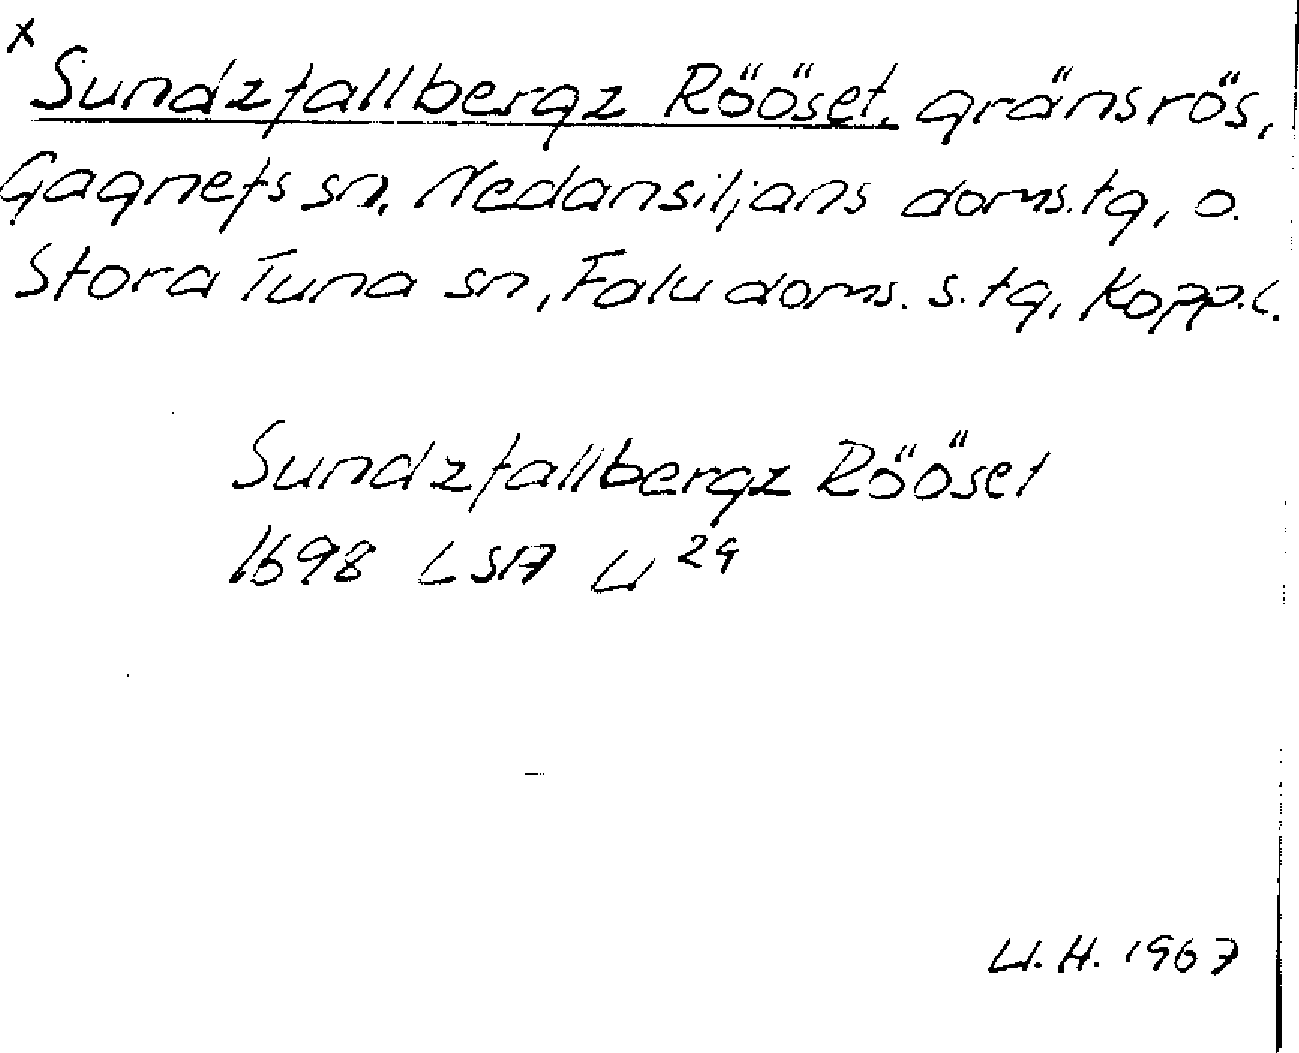 x
Sundzfallbergz Rööset. gränsrös,
Gagnefs sn, Nedansiljans doms.tg, o.
Stora Tuna sn, Falu doms. s. tg, Kopp.l.
Sundzfallbergz Rööset
1698 LSA U 29
U. H. 1967